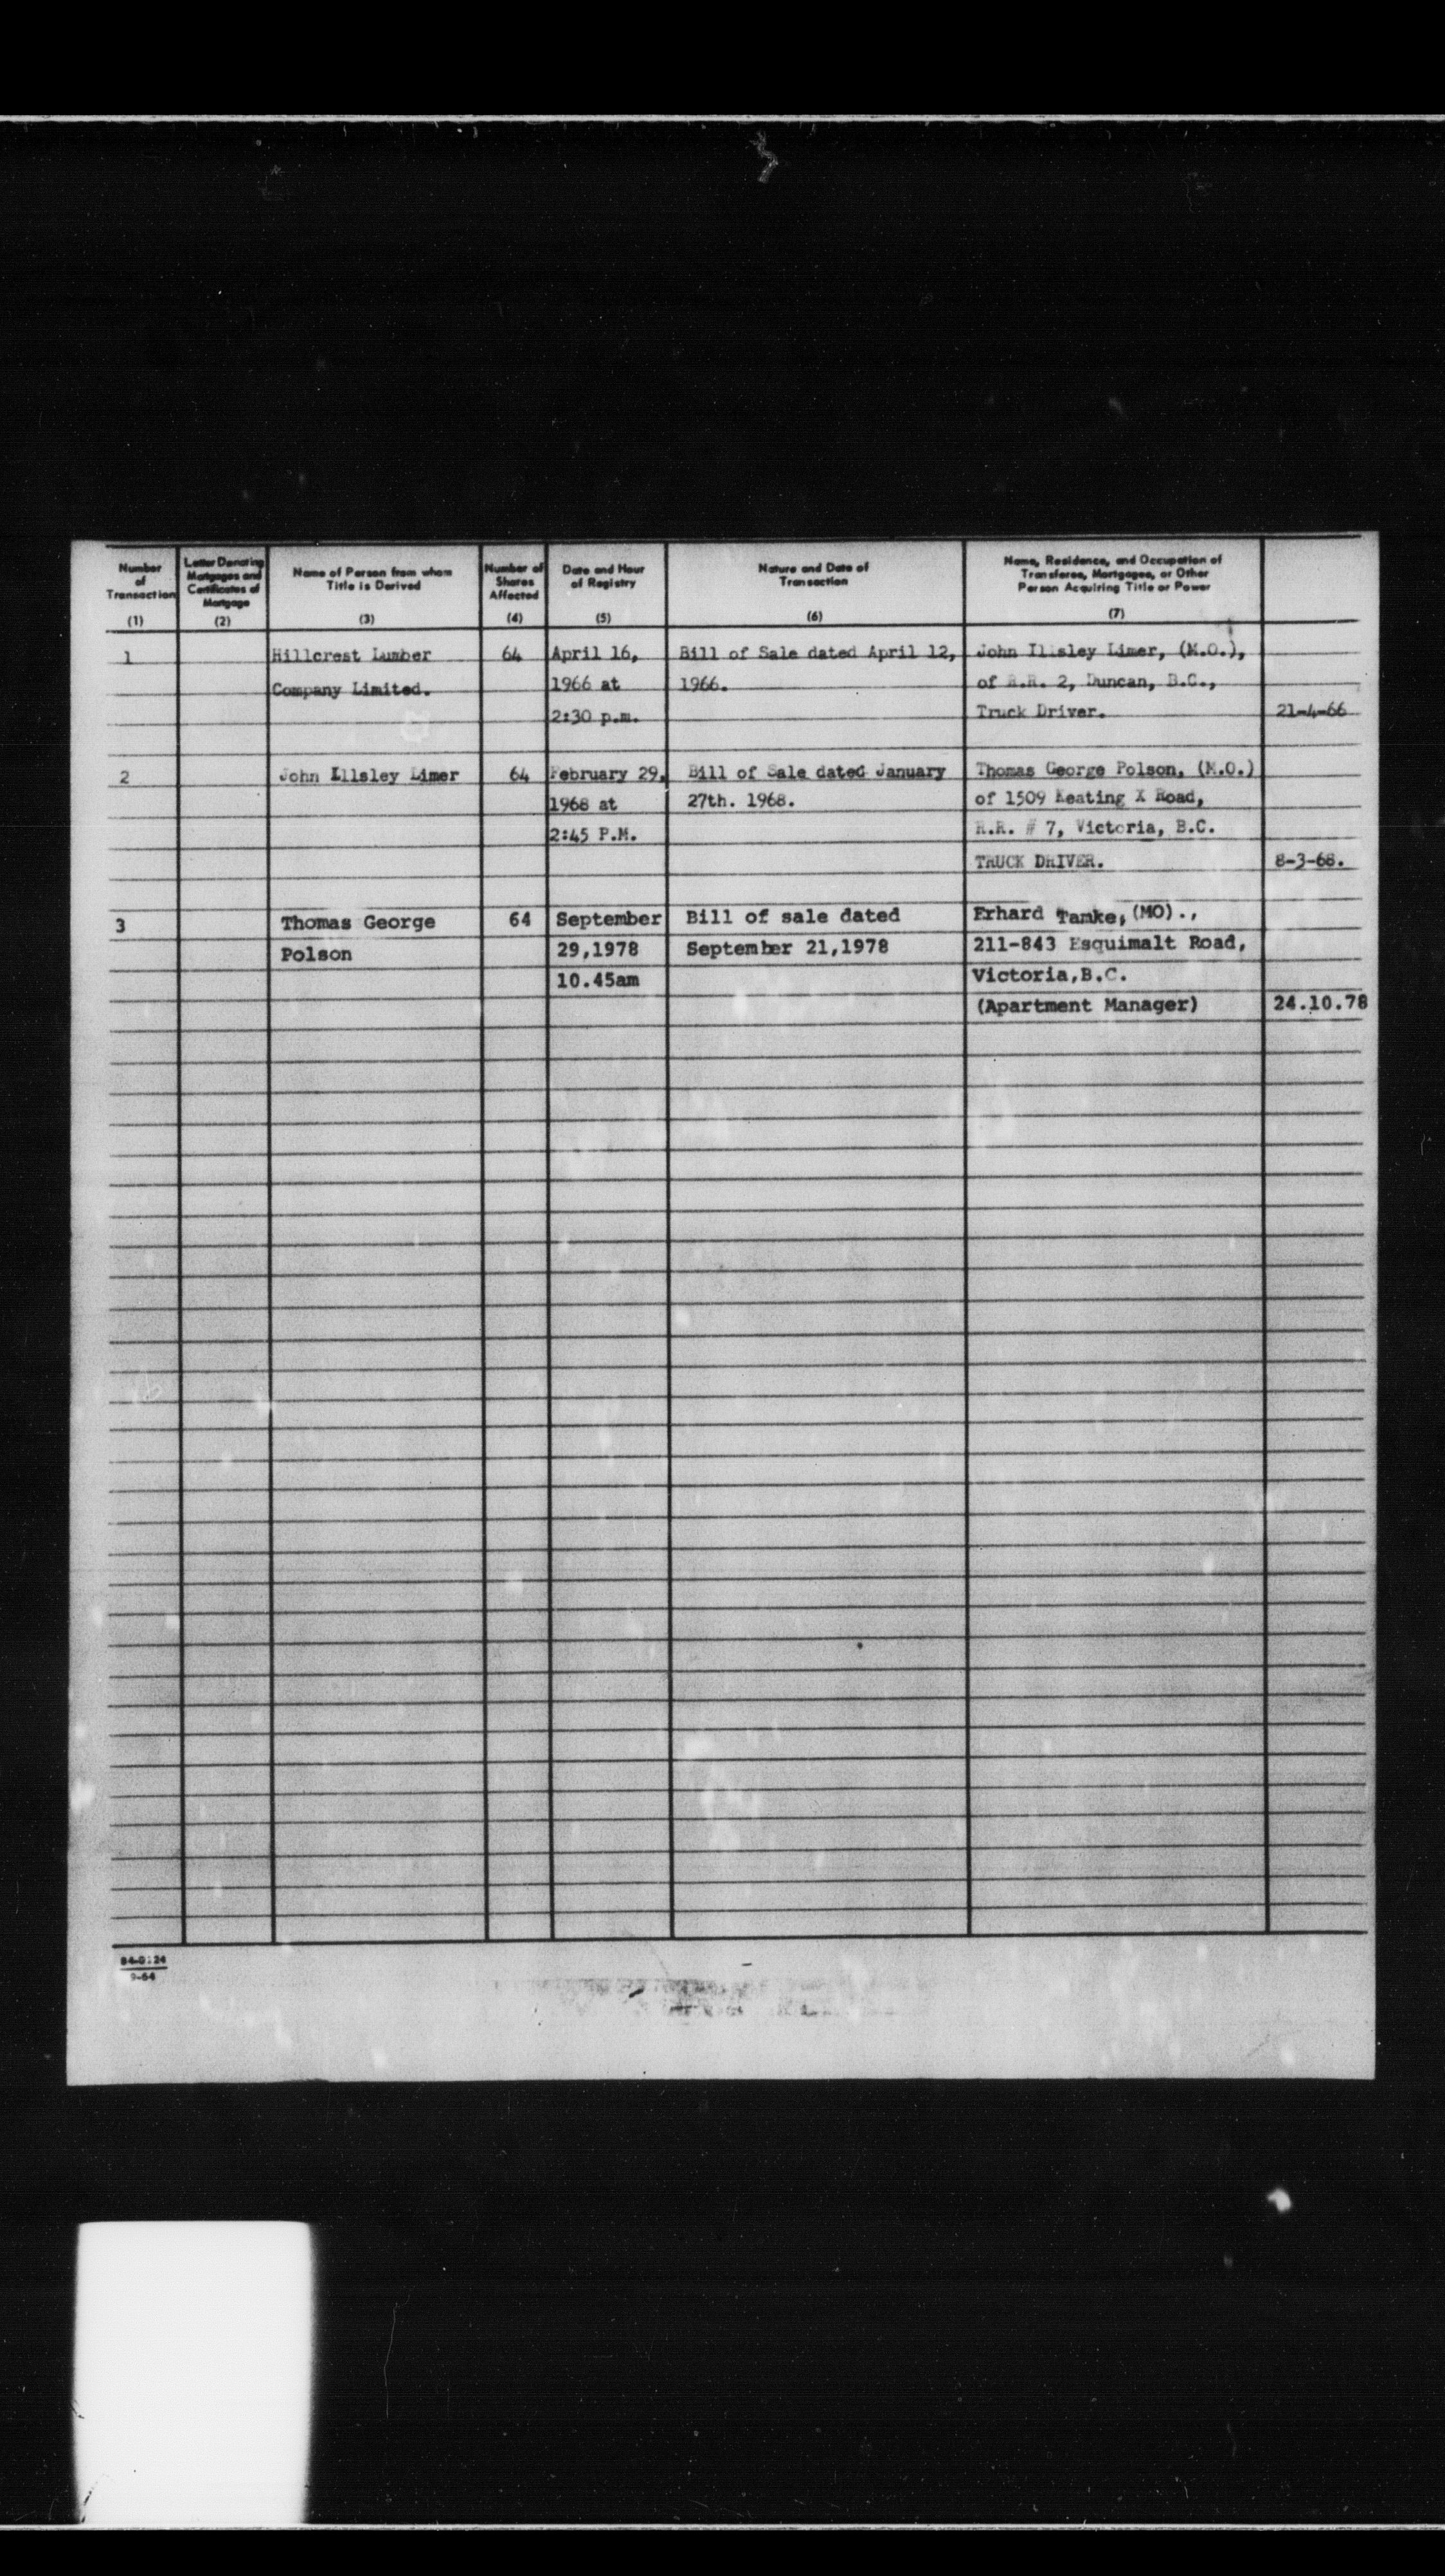 Number of Transaction (1)
Letter Denoting Mortgages and Certificates of Mortgage (2)
Name of Person from whom Title is Derived (3)
Number of Shares Affected (4)
Date and Hour of Registry (5)
Nature and Date of Transaction (6)
Name, Residence, and Occupation of Transferee, Mortgagee, or Other Person Acquiring Title or Power (7)
1 Hillcrest Lumber 64 April 16, Bill of Sale dated April 12, John Illsley Limer, (M.O.),
Company Limited. 1966 at 1966. of R.R. 2, Duncan, B.C.,
2:30 p.m. Truck Driver. 21-4-66
2 John Illsley Limer 64 February 29, Bill of Sale dated January Thomas George Polson, (M.O.)
1968 at 27th. 1968. of 1509 Keating X Road,
2:45 P.M. R.R. # 7, Victoria, B.C.
TRUCK DRIVER. 8-3-68.
3 Thomas George 64 September Bill of sale dated Erhard Tamke, (MO).,
Polson 29,1978 September 21,1978 211-843 Esquimalt Road,
10.45am Victoria,B.C.
(Apartment Manager) 24.10.78
84-0124
9-64